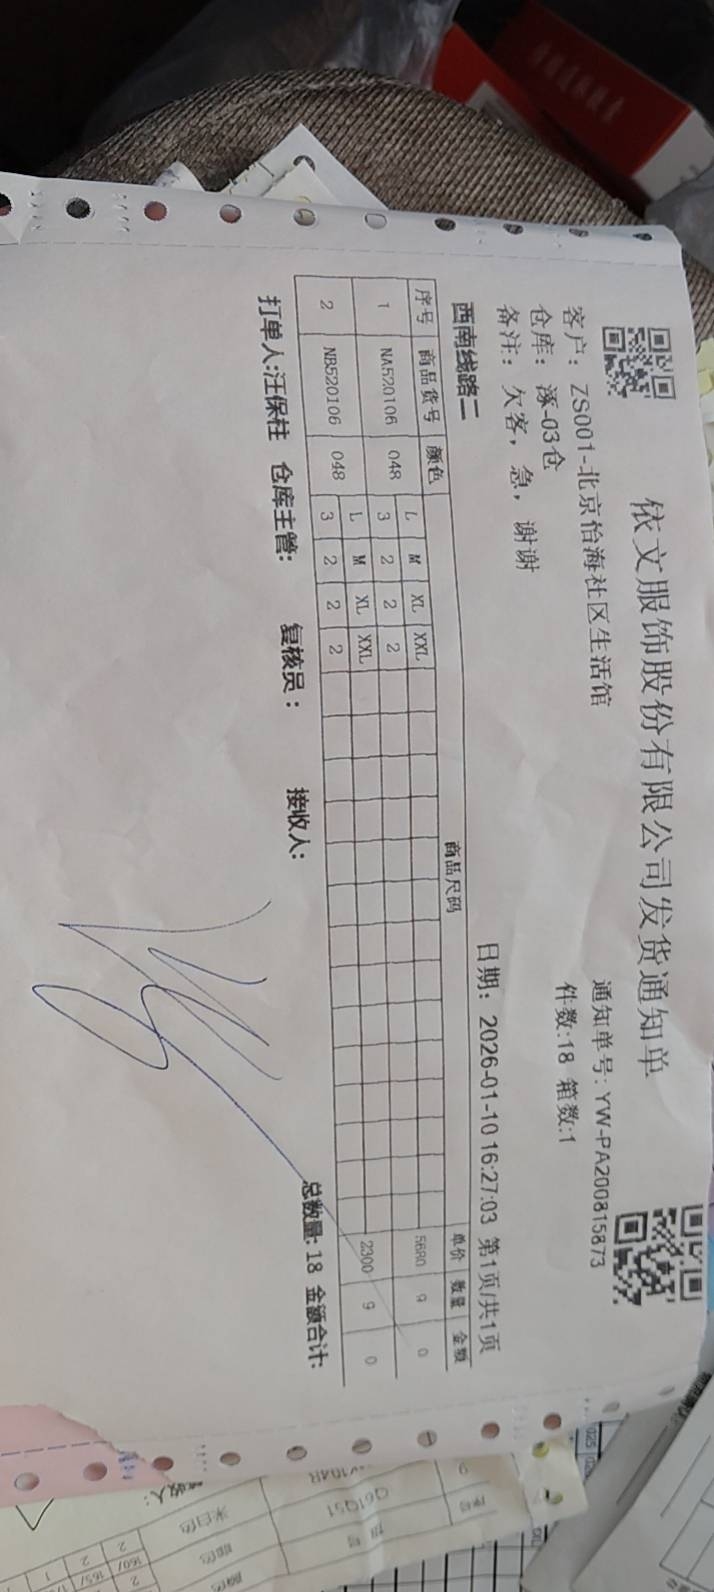 依文服饰股份有限公司发货通知单
客户：ZS001-北京怡海社区生活馆 通知单号：YW-PA200815873
仓库：涿-03仓 件数:18 箱数:1
备注：欠客，急，谢谢
西南线路二 日期：2026-01-10 16:27:03 第1页/共1页
序号 商品货号 颜色 商品尺码 单价 数量 金额
L M XL XXL
1 NA520106 048 3 2 2 2 5680 9 0
L M XL XXL
2 NB520106 048 3 2 2 2 2300 9 0
总数量: 18 金额合计:
打单人:汪保柱 仓库主管: 复核员： 接收人:
序号
Q61Q51
米白色